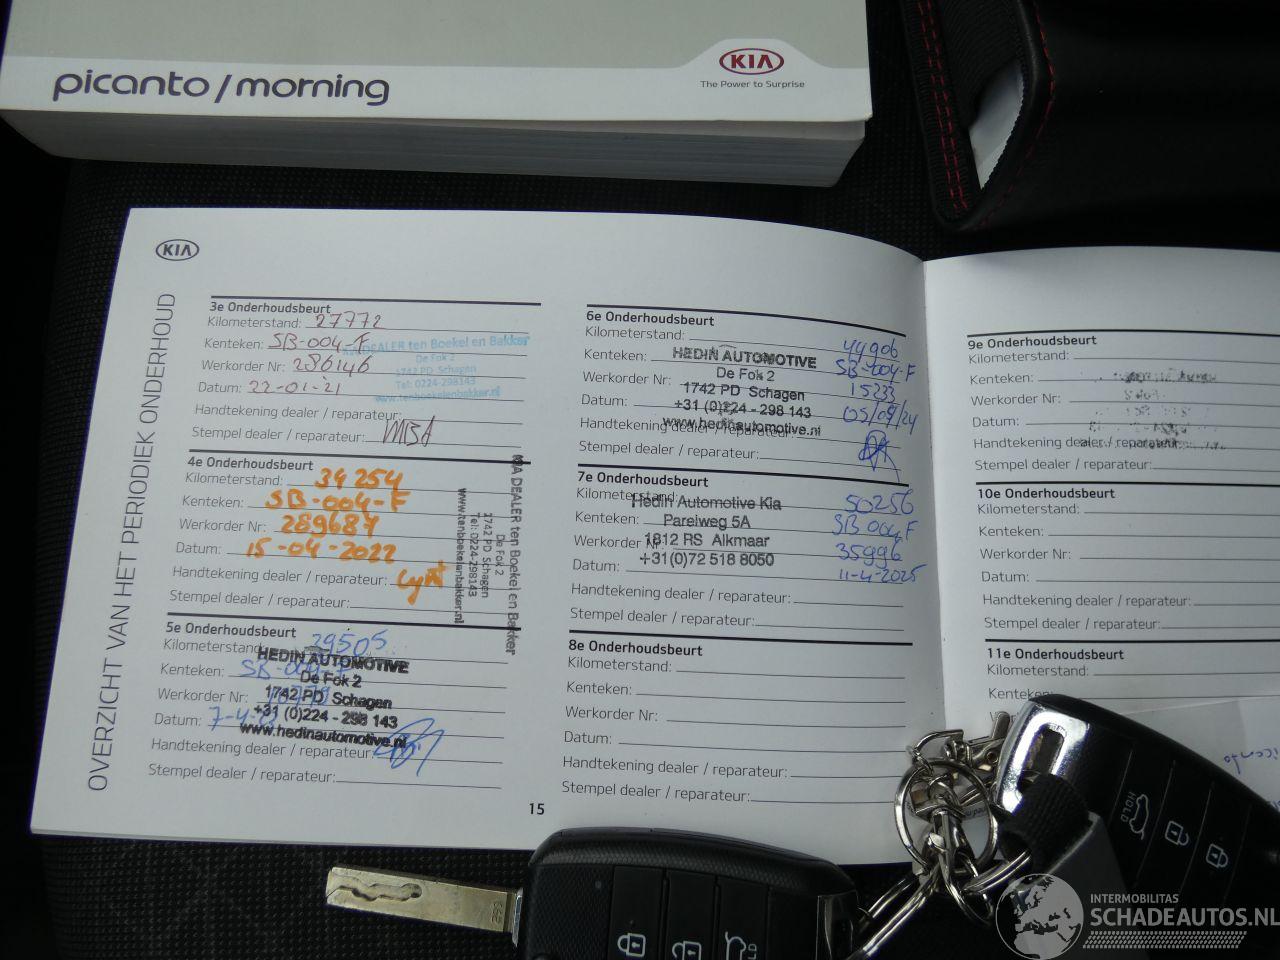 picanto/morning
KIA
The Power to Surprise
KIA
OVERZICHT VAN HET PERIODIEK ONDERHOUD
3e Onderhoudsbeurt
Kilometerstand: 27772
Kenteken: SB-004-F
Werkorder Nr: 286146
Datum: 22-01-21
Handtekening dealer / reparateur:
Stempel dealer / reparateur:
KIA DEALER ten Boekel en Bakker
De Fok 2
1742 PD Schagen
Tel: 0224-298143
www.tenboekelenbakker.nl
4e Onderhoudsbeurt
Kilometerstand: 34254
Kenteken: SB-004-F
Werkorder Nr: 289687
Datum: 15-04-2022
Handtekening dealer / reparateur:
Stempel dealer / reparateur:
KIA DEALER ten Boekel en Bakker
De Fok 2
1742 PD Schagen
Tel: 0224-298143
www.tenboekelenbakker.nl
5e Onderhoudsbeurt
Kilometerstand: 39505
Kenteken: SB-004-F
Werkorder Nr:
Datum: 7-4-23
Handtekening dealer / reparateur:
Stempel dealer / reparateur:
HEDIN AUTOMOTIVE
De Fok 2
1742 PD Schagen
+31 (0)224 - 298 143
www.hedinautomotive.nl
15
6e Onderhoudsbeurt
Kilometerstand: 44906
Kenteken: SB-004-F
Werkorder Nr: 15233
Datum: 05/04/24
Handtekening dealer / reparateur:
Stempel dealer / reparateur:
HEDIN AUTOMOTIVE
De Fok 2
1742 PD Schagen
+31 (0)224 - 298 143
www.hedinautomotive.nl
7e Onderhoudsbeurt
Kilometerstand: 50256
Kenteken: SB 004 F
Werkorder Nr: 35996
Datum: 11-4-2025
Handtekening dealer / reparateur:
Stempel dealer / reparateur:
Hedin Automotive Kia
Parelweg 5A
1812 RS Alkmaar
+31(0)72 518 8050
8e Onderhoudsbeurt
Kilometerstand:
Kenteken:
Werkorder Nr:
Datum:
Handtekening dealer / reparateur:
Stempel dealer / reparateur:
9e Onderhoudsbeurt
Kilometerstand:
Kenteken:
Werkorder Nr:
Datum:
Handtekening dealer / reparateur:
Stempel dealer / reparateur:
10e Onderhoudsbeurt
Kilometerstand:
Kenteken:
Werkorder Nr:
Datum:
Handtekening dealer / reparateur:
Stempel dealer / reparateur:
11e Onderhoudsbeurt
Kilometerstand:
Kenteken:
HOLD
INTERMOBILITAS
SCHADEAUTOS.NL